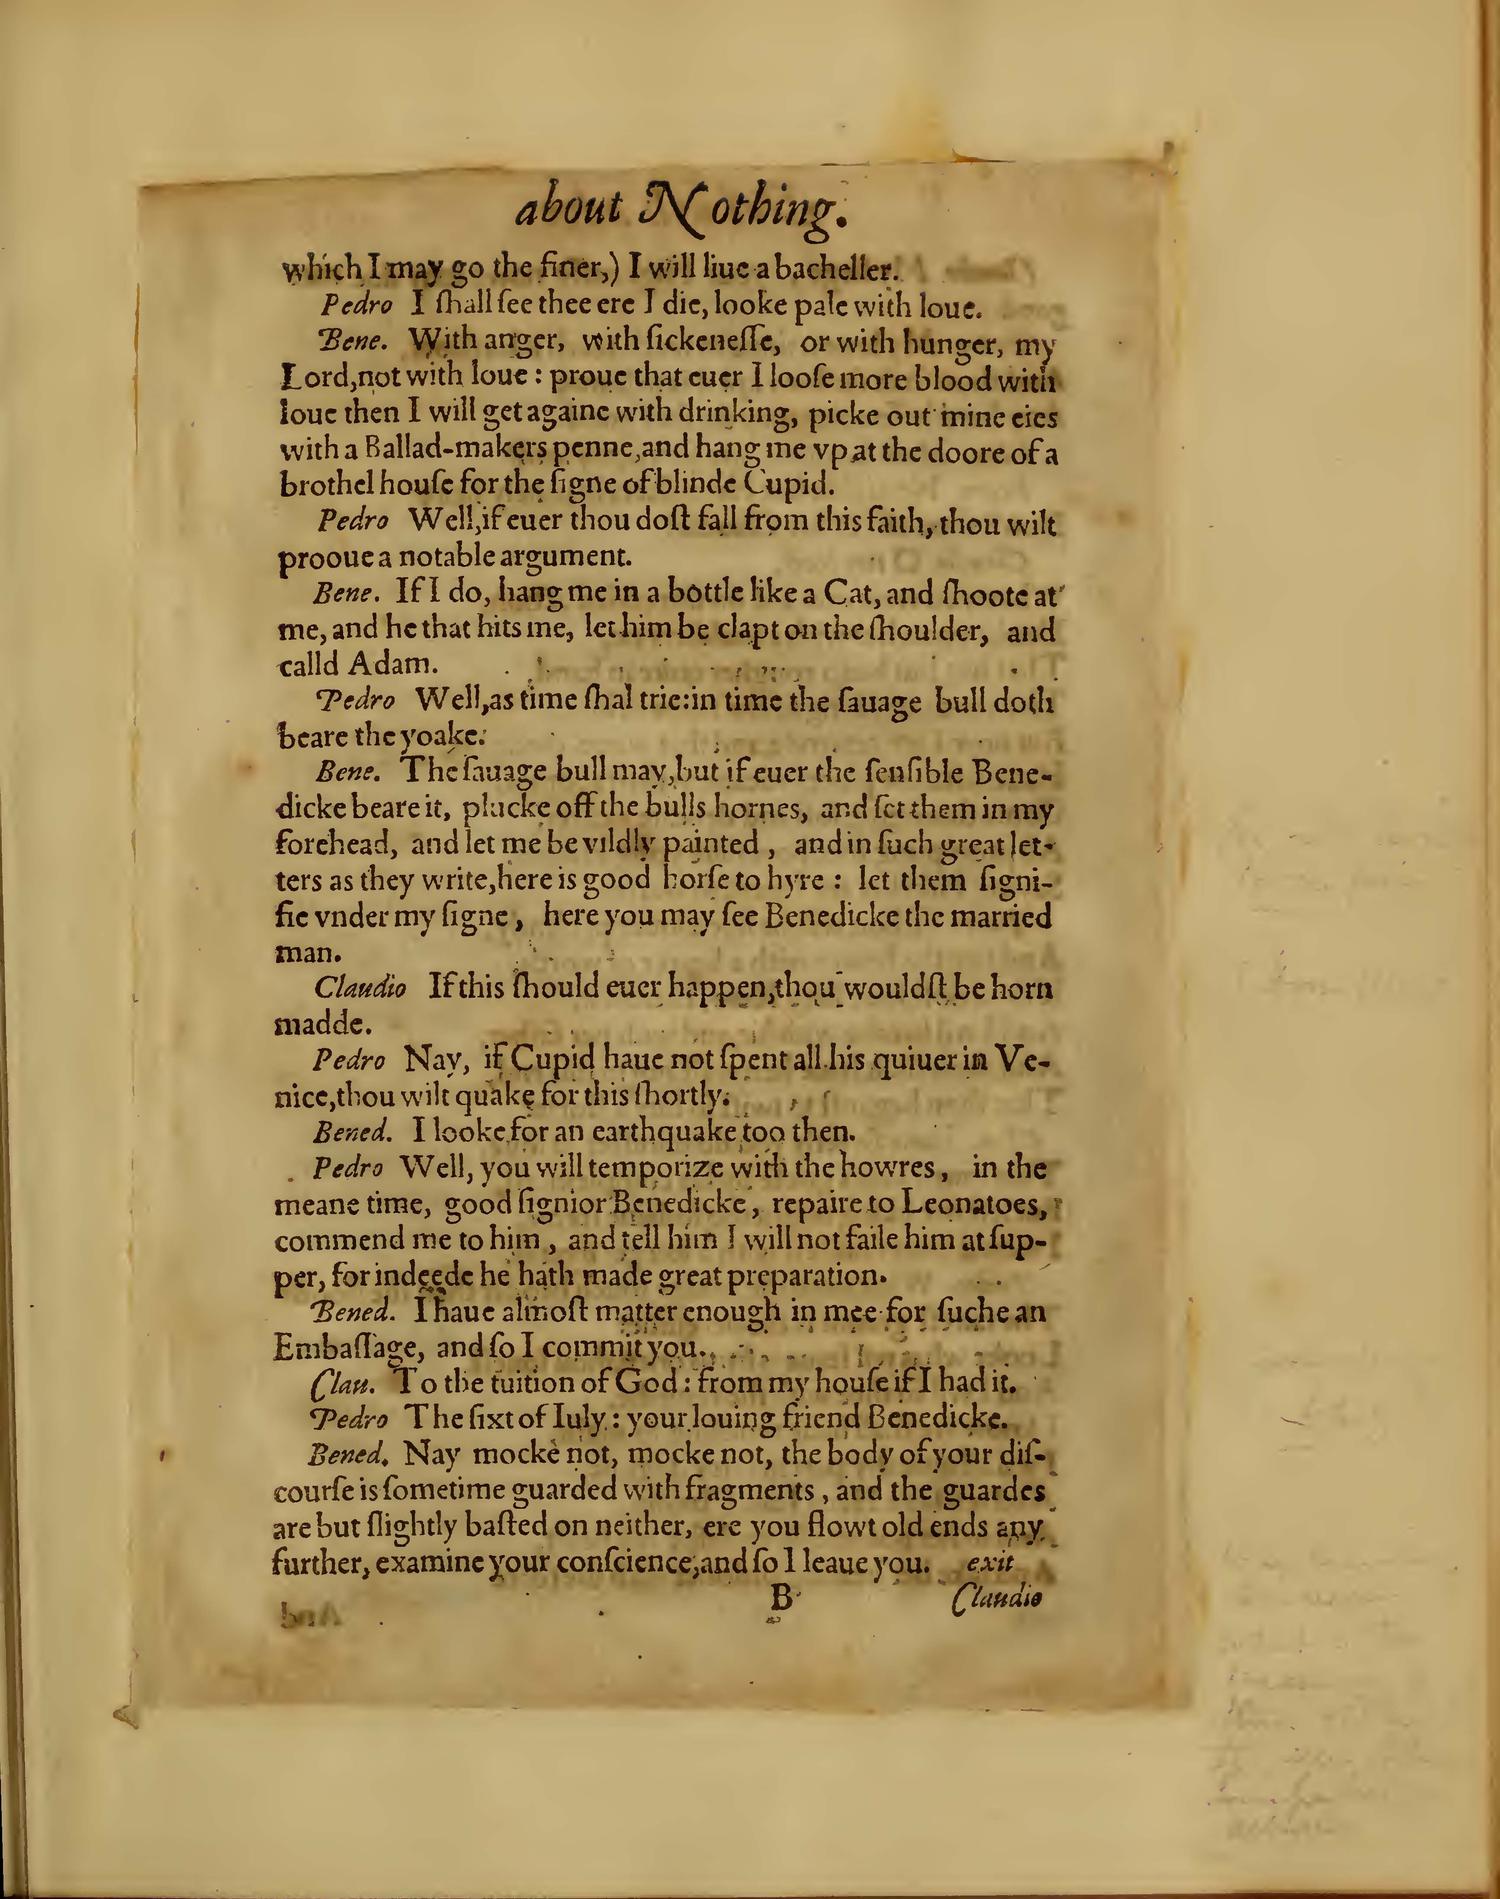 about Nothing.
which I may go the finer,) I will liue a bacheller.
Pedro I ſhall ſee thee ere I die, looke pale with loue.
Bene. With anger, with ſickeneſſe, or with hunger, my
Lord,not with loue : proue that euer I looſe more blood with
loue then I will get againe with drinking, picke out mine eies
with a Ballad-makers penne,and hang me vp at the doore of a
brothel houſe for the ſigne of blinde Cupid.
Pedro Well,if euer thou doſt fall from this faith, thou wilt
prooue a notable argument.
Bene. If I do, hang me in a bottle like a Cat, and ſhoote at
me, and he that hits me, let him be clapt on the ſhoulder, and
calld Adam.
Pedro Well,as time ſhal trie:in time the ſauage bull doth
beare the yoake.
Bene. The ſauage bull may,but if euer the ſenſible Bene-
dicke beare it, plucke off the bulls hornes, and ſet them in my
forehead, and let me be vildly painted , and in ſuch great let-
ters as they write,here is good horſe to hyre : let them ſigni-
fie vnder my ſigne , here you may ſee Benedicke the married
man.
Claudio If this ſhould euer happen,thou wouldſt be horn
madde.
Pedro Nay, if Cupid haue not ſpent all his quiuer in Ve-
nice,thou wilt quake for this ſhortly.
Bened. I looke for an earthquake too then.
Pedro Well, you will temporize with the howres , in the
meane time, good ſignior Benedicke , repaire to Leonatoes,
commend me to him , and tell him I will not faile him at ſup-
per, for indeede he hath made great preparation.
Bened. I haue almoſt matter enough in mee for ſuche an
Embaſſage, and ſo I commit you.
Clau. To the tuition of God : from my houſe if I had it.
Pedro The ſixt of Iuly : your louing friend Benedicke.
Bened. Nay mocke not, mocke not, the body of your diſ-
courſe is ſometime guarded with fragments , and the guardes
are but ſlightly baſted on neither, ere you flowt old ends any
further, examine your conſcience,and ſo I leaue you. exit
B Claudio